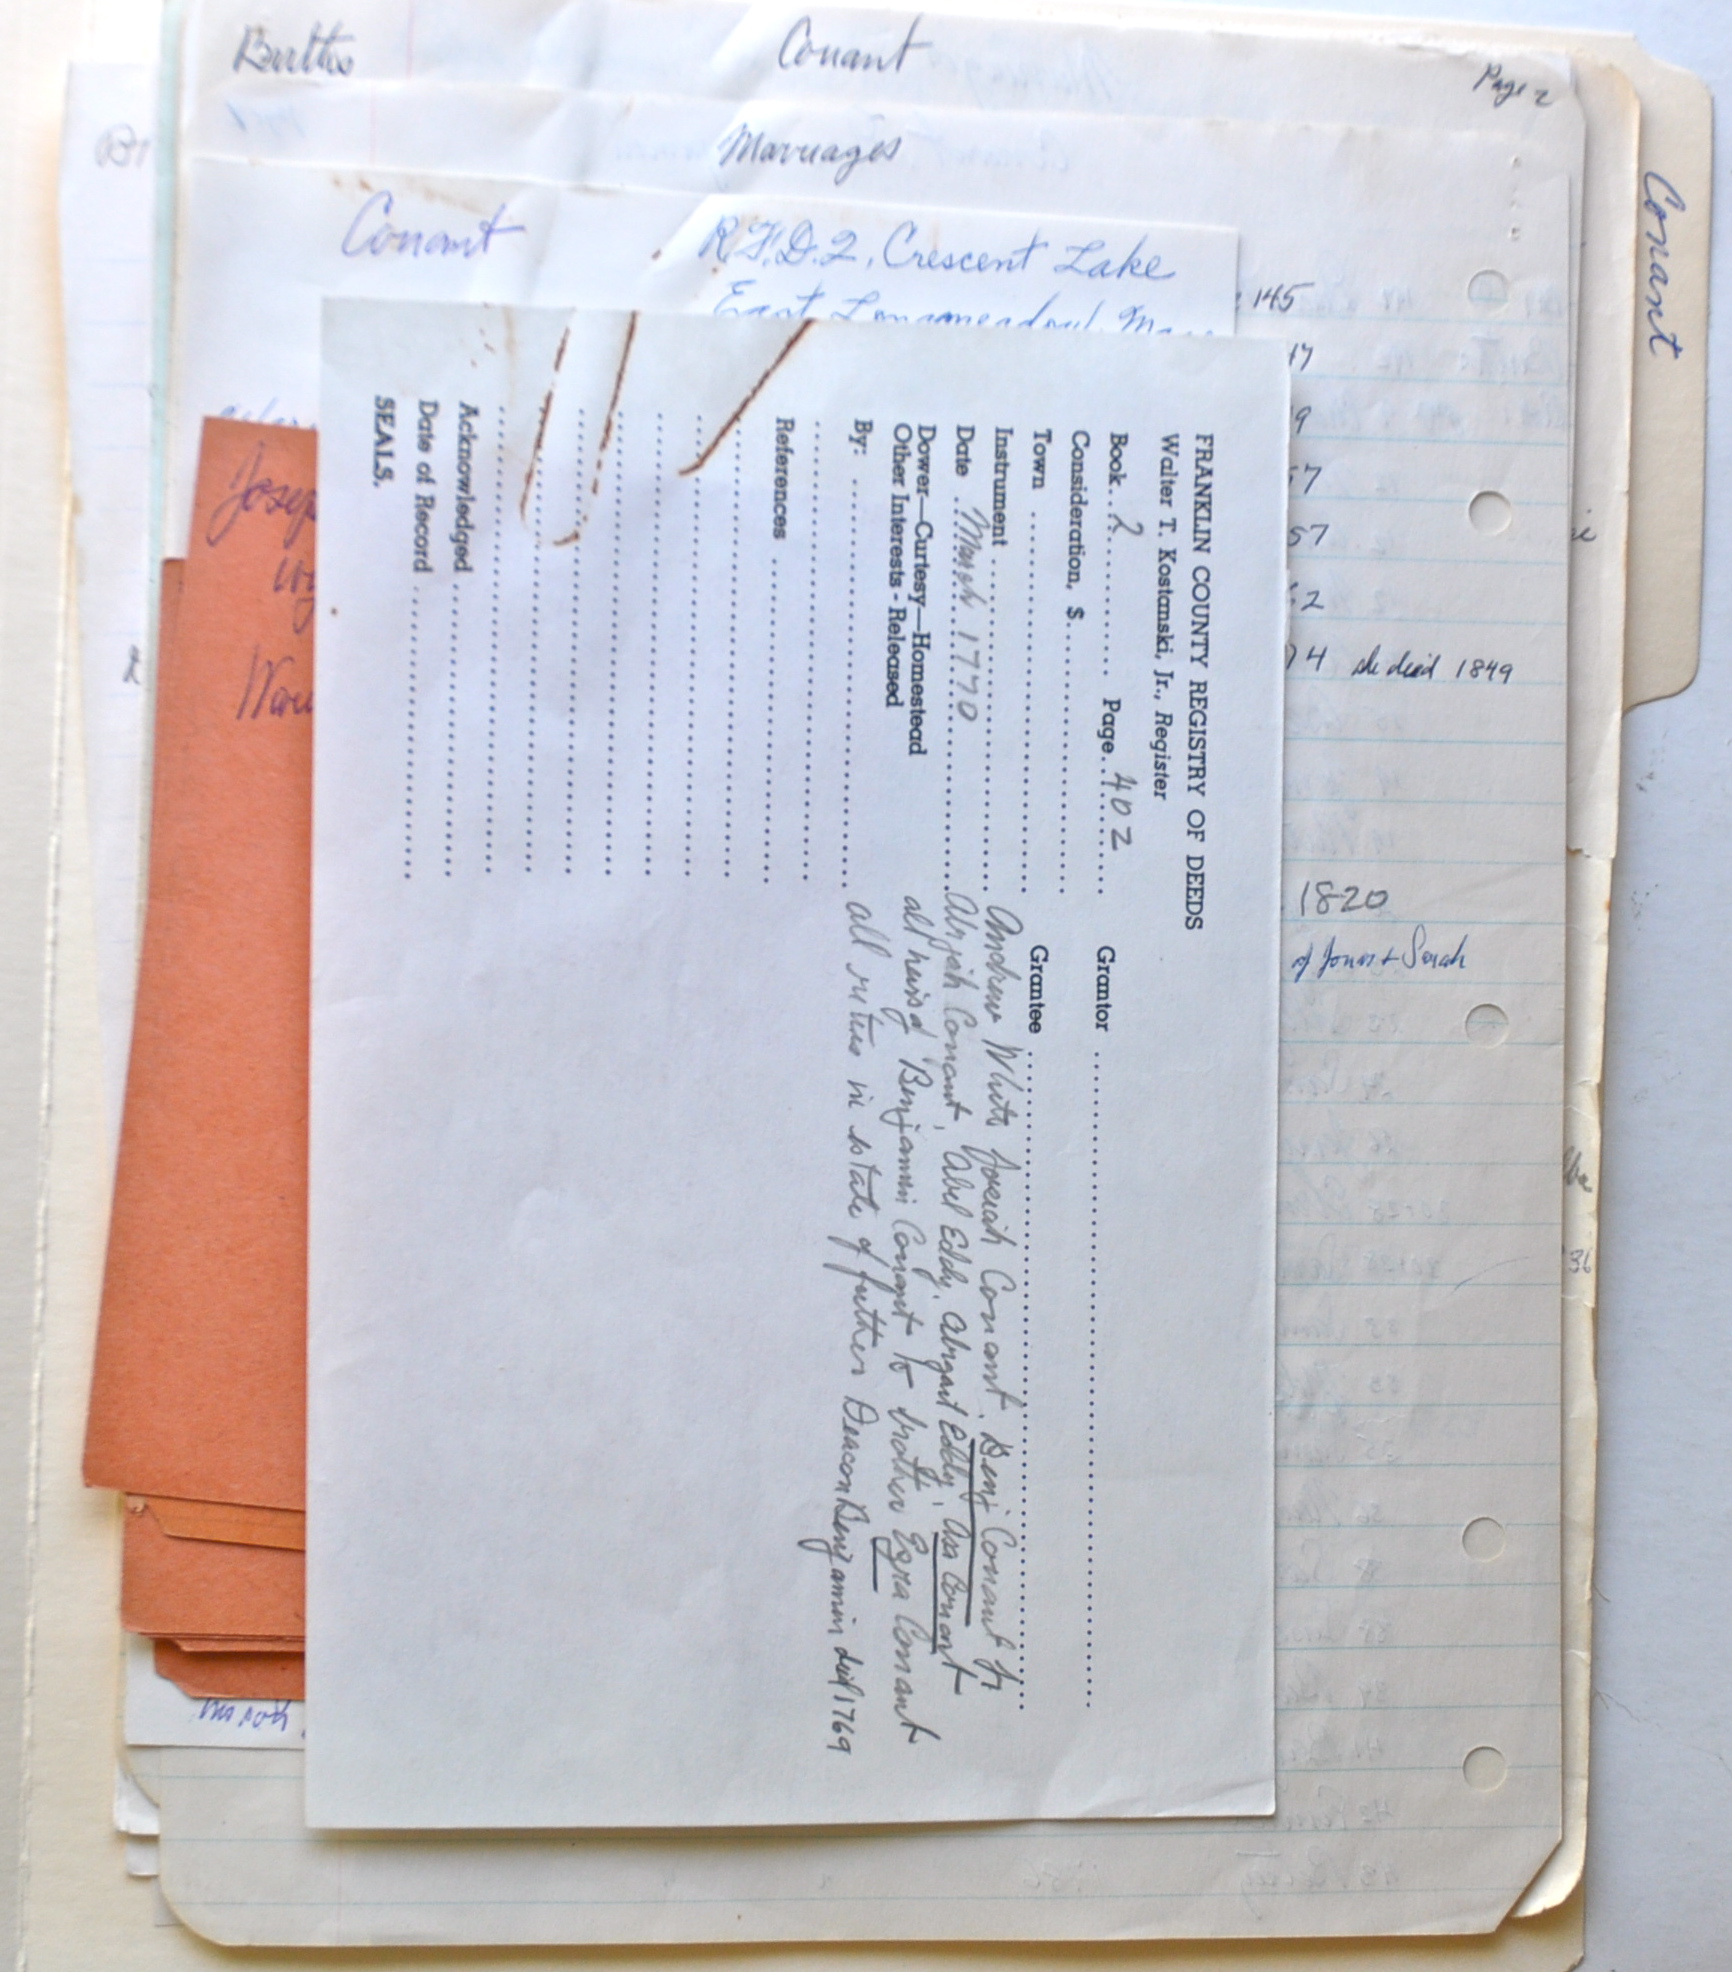 Births Conant Page 2
Marriages
Conant R.F.D.2, Crescent Lake
East Longmeadow, Mass
Conant
145
47
9
57
57
62
74 she died 1849
1820
of Jonas + Sarah
36
2
Josep
Wor
FRANKLIN COUNTY REGISTRY OF DEEDS
Walter T. Kostanski, Jr., Register
Book 2 Page 402 Grantor
Consideration, $
Town Grantee
Instrument Andrew White Josiah Conant, Benj Conant Jr
Date March 1770 Abijah Conant, Abel Eddy, Abigail Eddy, Asa Conant
Dower—Curtesy—Homestead
Other Interests - Released all heirs of Benjamin Conant to brother Ezra Conant
By: all in estate of father Deacon Benjamin died 1769
References
Acknowledged
Date of Record
SEALS.